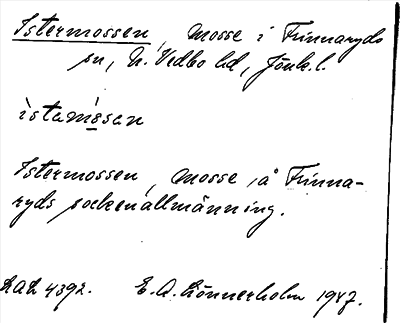 Istermossen, mosse i Finnaryds
sn, N. Vedbo hd, Jönk. l.
ìstamésan
Istermossen, mosse å Finna-
ryds sockenallmänning.
LAL 4392. E. A. Lönnerholm 1947.